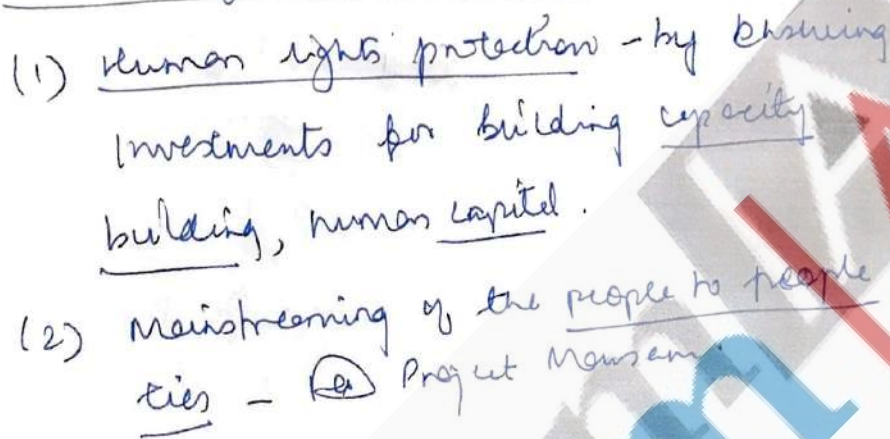 (1) Human rights protection - by ensuring
Investments for building capacity
building, human capital.
(2) Mainstreaming of the people to people
ties - eg Project Mausam.